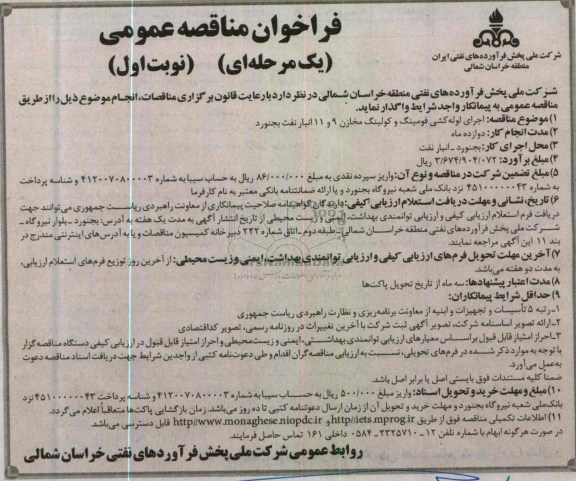 شرکت ملی پخش فرآورده‌های نفتی ایران
منطقه خراسان شمالی
فراخوان مناقصه عمومی
(یک مرحله‌ای) (نوبت اول)
شرکت ملی پخش فرآورده‌های نفتی منطقه خراسان شمالی در نظر دارد با رعایت قانون برگزاری مناقصات، انجام موضوع ذیل را از طریق
مناقصه عمومی به پیمانکار واجد شرایط واگذار نماید.
۱) موضوع مناقصه: اجرای لوله‌کشی فومینگ و کولینگ مخازن ۹ و ۱۱ انبار نفت بجنورد
۲) مدت انجام کار: دوازده ماه
۳) محل اجرای کار: بجنورد ـ انبار نفت
۴) مبلغ برآورد: ۳/۶۷۴/۹۰۴/۰۷۲ ریال
۵) مبلغ تضمین شرکت در مناقصه و نوع آن: واریز سپرده نقدی به مبلغ ۸۶/۰۰۰/۰۰۰ ریال به حساب سیبا به شماره ۴۱۲۰۰۷۰۸۰۰۰۳ و شناسه پرداخت
به شماره ۴۵۱۰۰۰۰۰۰۴۳ نزد بانک ملی شعبه نیروگاه بجنورد و یا ارائه ضمانتنامه بانکی معتبر به نام کارفرما
۶) تاریخ، نشانی و مهلت دریافت استعلام ارزیابی کیفی: دارندگان گواهینامه صلاحیت پیمانکاری از معاونت راهبردی ریاست جمهوری می‌توانند جهت
دریافت فرم استعلام ارزیابی کیفی و ارزیابی توانمندی بهداشت، ایمنی و زیست محیطی از تاریخ انتشار آگهی به مدت یک هفته به آدرس: بجنورد ـ بلوار نیروگاه ـ
شرکت ملی پخش فرآورده‌های نفتی منطقه خراسان شمالی ـ طبقه دوم ـ اتاق شماره ۲۲۲ دبیرخانه کمیسیون مناقصات و یا به آدرس‌های اینترنتی مندرج در
بند ۱۱ این آگهی مراجعه نمایند.
۷) آخرین مهلت تحویل فرم‌های ارزیابی کیفی و ارزیابی توانمندی بهداشت، ایمنی و زیست محیطی: از آخرین روز توزیع فرم‌های استعلام ارزیابی،
به مدت دو هفته می‌باشد.
۸) مدت اعتبار پیشنهادها: سه ماه از تاریخ تحویل پاکت‌ها
۹) حداقل شرایط پیمانکاران:
۱ـ رتبه ۵ تأسیسات و تجهیزات و ابنیه از معاونت برنامه‌ریزی و نظارت راهبردی ریاست جمهوری
۲ـ ارائه تصویر اساسنامه شرکت، تصویر آگهی ثبت شرکت با آخرین تغییرات در روزنامه رسمی، تصویر کداقتصادی
۳ـ احراز امتیاز قابل قبول براساس معیارهای ارزیابی توانمندی بهداشتی، ایمنی و زیست‌محیطی و احراز امتیاز قابل قبول در ارزیابی کیفی دستگاه مناقصه‌گزار
با توجه به موارد ذکر شده در فرم‌های تحویلی، نسبت به ارزیابی مناقصه‌گران اقدام و طی دعوت‌نامه کتبی از واجدین شرایط جهت دریافت اسناد مناقصه دعوت
به‌عمل می‌آورد.
ضمناً کلیه مستندات فوق بایستی اصل یا برابر اصل باشد.
۱۰) مبلغ و مهلت خرید و تحویل اسناد: واریز مبلغ ۵۰۰/۰۰۰ ریال به حساب سیبا به شماره ۴۱۲۰۰۷۰۸۰۰۰۳ و شناسه پرداخت ۴۵۱۰۰۰۰۰۰۴۳ نزد
بانک‌ملی شعبه نیروگاه بجنورد و مهلت خرید و تحویل آن از زمان ارسال دعوتنامه کتبی تا ده روز می‌باشد. زمان بازگشایی پاکت‌ها متعاقباً اعلام می‌گردد.
۱۱) اطلاعات تکمیلی مناقصه فوق از طریق http//iets.mprog.ir و http//www.monaghese.niopdc.ir قابل دسترسی می‌باشد.
در صورت هرگونه ابهام با شماره تلفن ۱۲ ـ ۲۲۲۵۷۱۰ ـ ۰۵۸۴ داخلی ۱۶۱ تماس حاصل فرمایند.
روابط عمومی شرکت ملی پخش فرآورده‌های نفتی خراسان شمالی